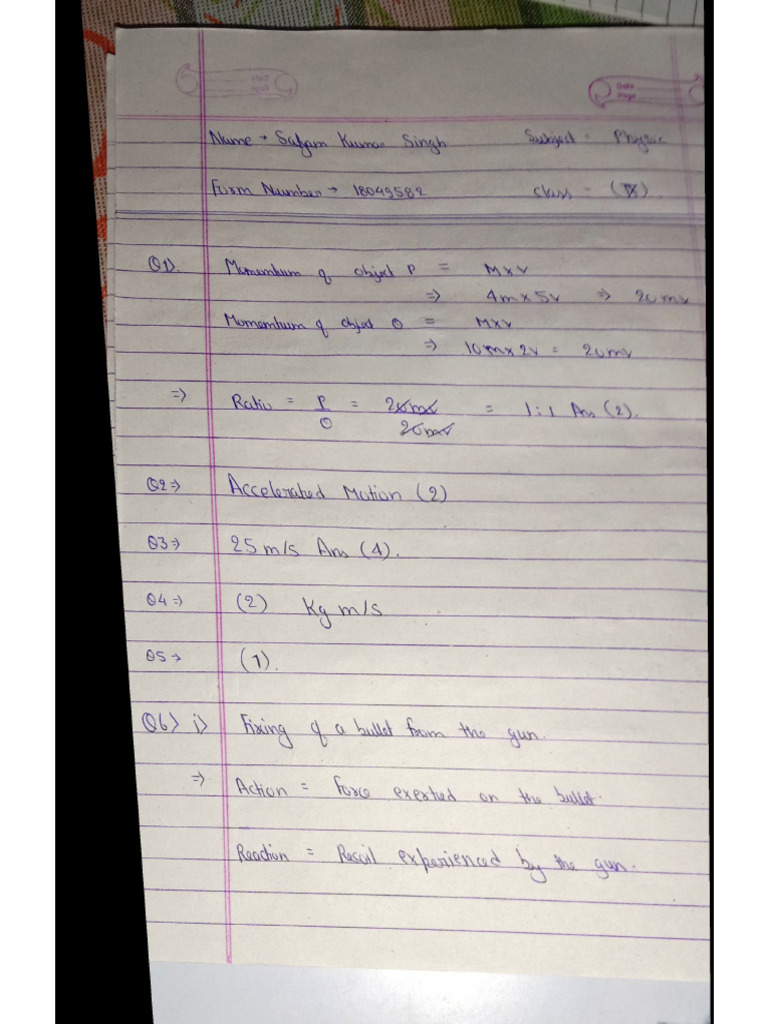 Date
Page
Name → Satyam Kumar Singh Subject = Physic
Form Number → 18049582 class = (IX).
Q1). Momentum of object P = M×v
=> 4m × 5v => 20mv
Momentum of object Q = M×v
=> 10m × 2v = 20mv
=> Ratio = P/Q = 20mv/20mv = 1:1 Ans (2).
Q2=> Accelerated Motion (2)
Q3=> 25 m/s Ans (4).
Q4=> (2) Kg m/s
Q5→ (1).
Q6> i) Fixing of a bullet from the gun.
=> Action = Force exerted on the bullet.
Reaction = Recoil experienced by the gun.